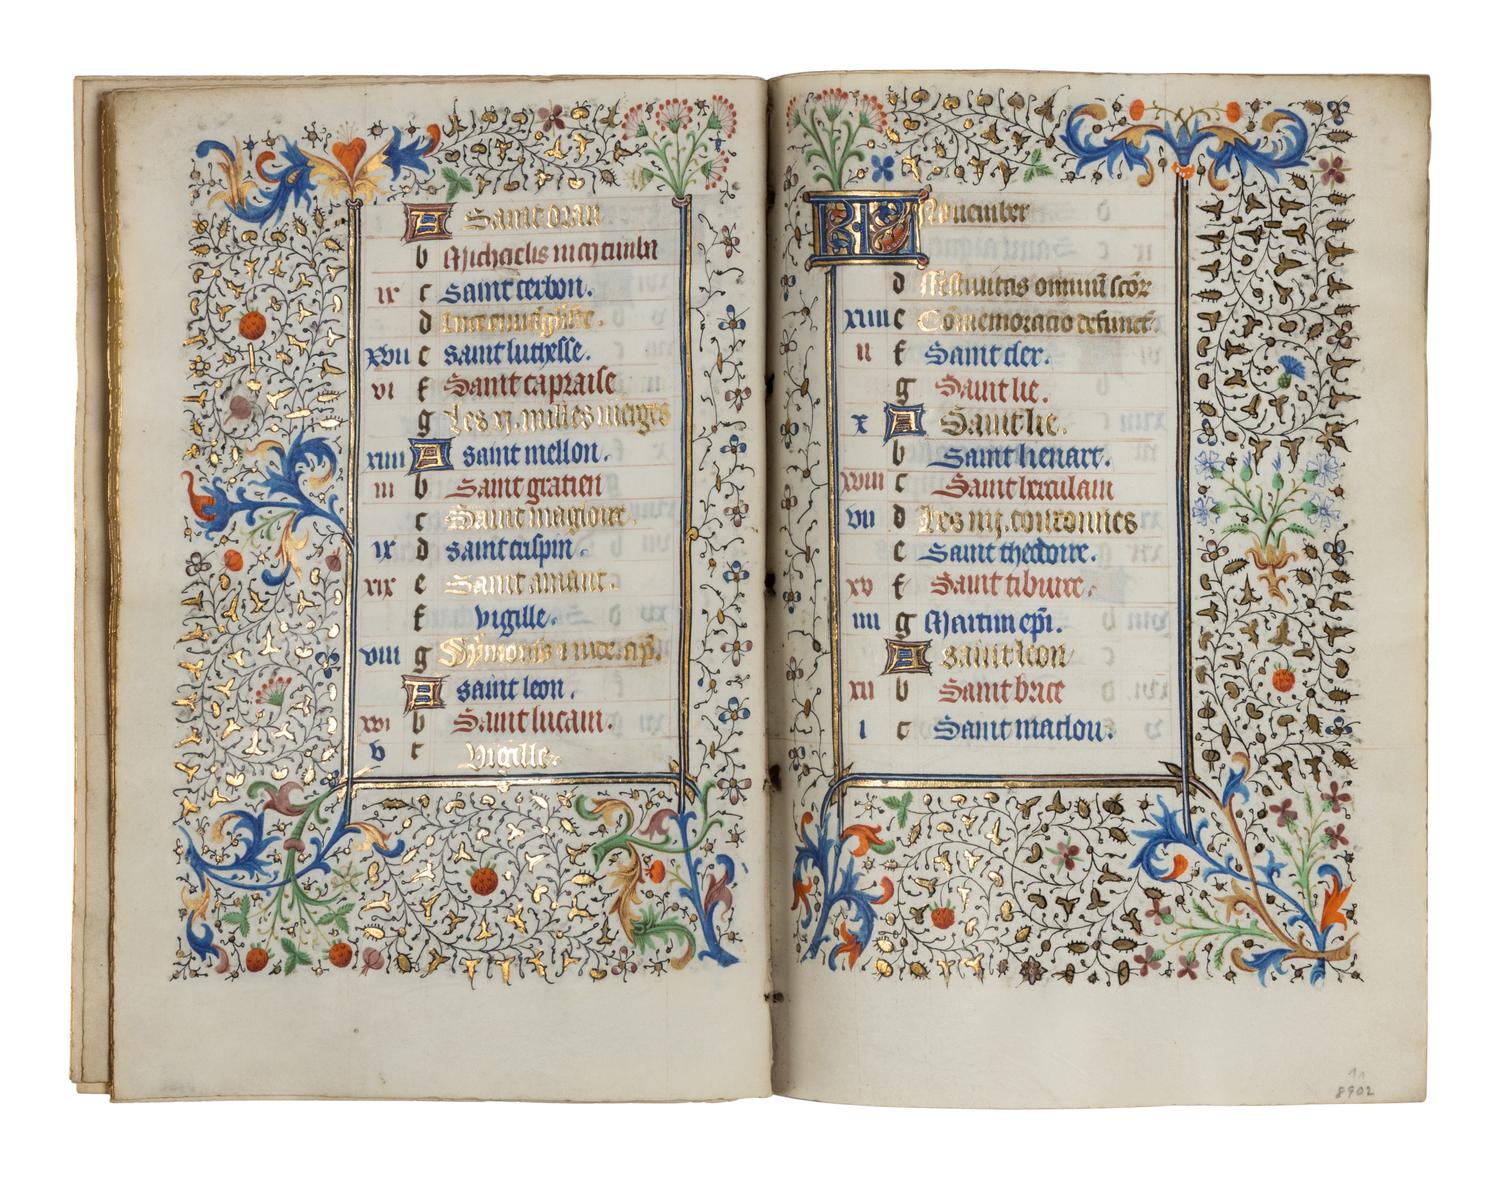 A Saint oran
b Michaelis in mõ tumba
ix c Saint cerbon.
d Luce euũgeliste.
xvii e saint lutresse.
vi f Saint capraise
g Les xj. milles vierges
xiiii A saint mellon.
iii b Saint gratien
c Saint magloire.
ix d saint crispin.
xix e Saint amant.
f vigille.
viii g Symonis i iude. ap̃.
A saint leon.
xvi b Saint lucain.
v c Vigille.
KL Nouember
d Festiuitas omniũ scõr
xiiii e Cõmemoracio defunct̃
ii f Saint cler.
g Saint lie.
x A Saint lie.
b Saint lienart.
xviii c Saint herculain
vii d Les iiij. couronnes
e Saint theodoire.
xv f Saint tiburce.
iiii g Martin ep̃i.
A saint leon
xii b Saint brice
i c Saint maclou.
11
8902